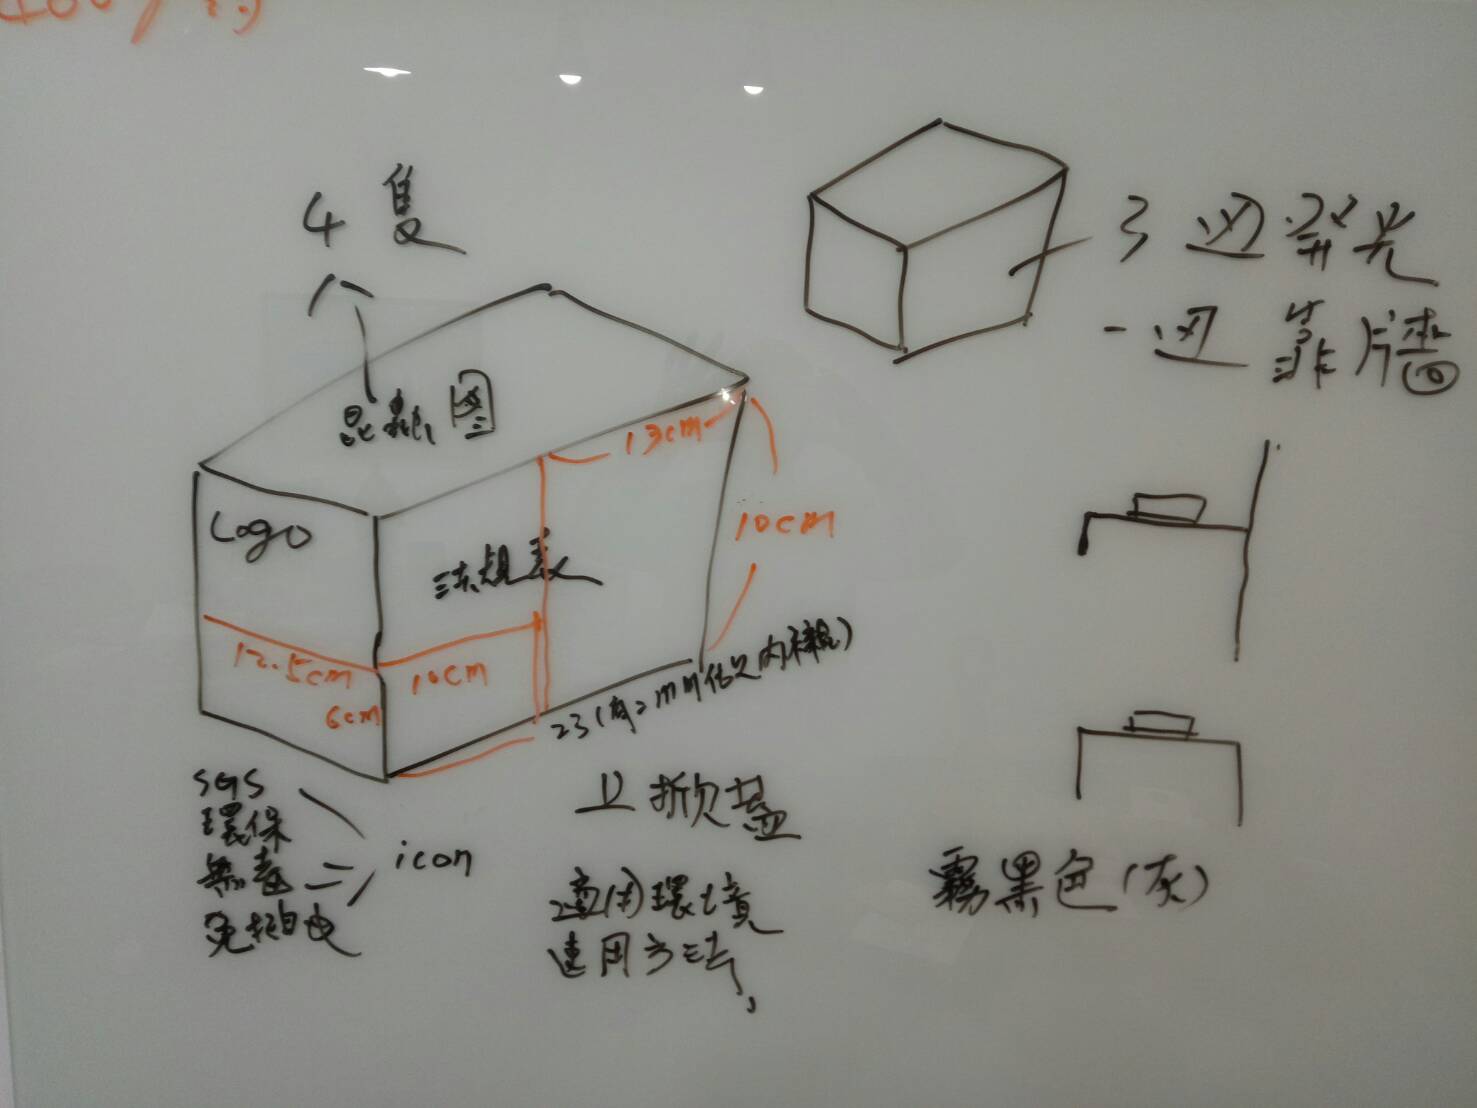 4隻
昆蟲图
Logo
法規表
13cm
10cm
12.5cm
10cm
6cm
23(有2mm 內襯)
SGS
環保
無毒
免插电
icon
掀蓋
適用環境
使用方法
3边發光
一边靠牆
霧黑色(灰)